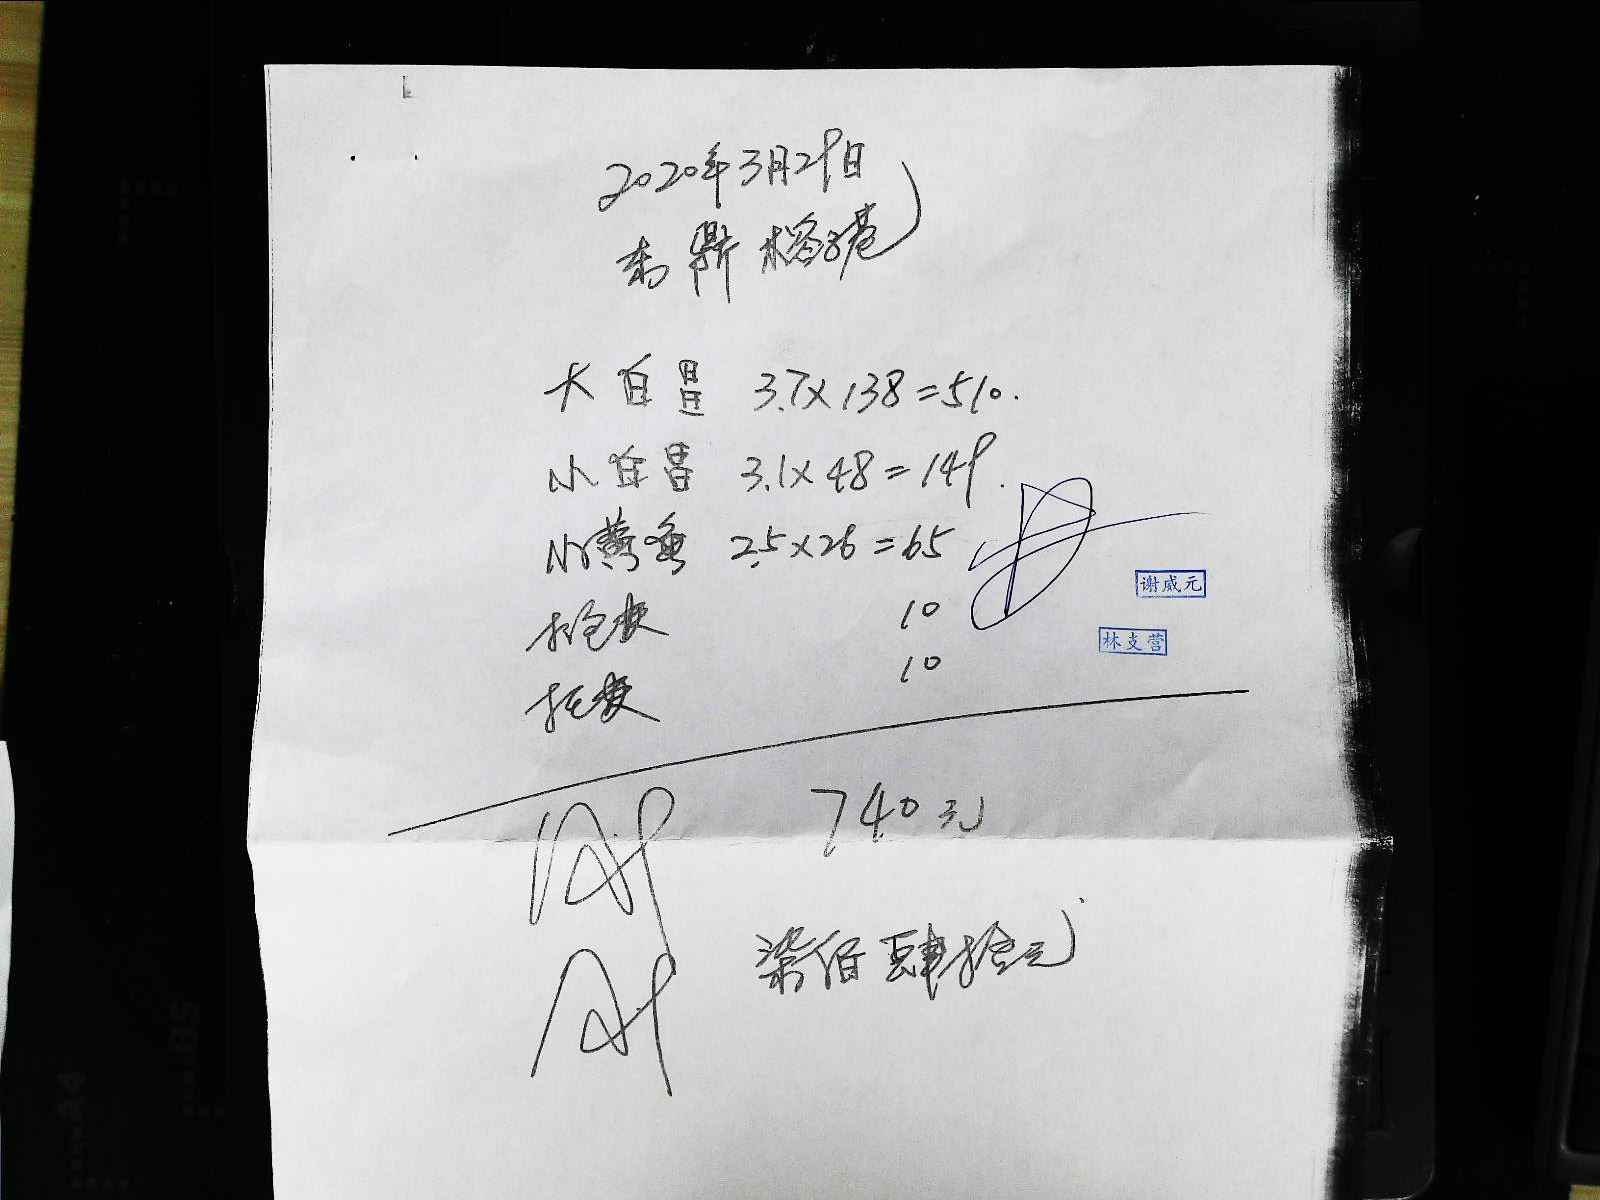 2020年3月29日
大白昌 3.7×138=510.
小白昌 3.1×48=149.
小黄鱼 2.5×26=65
谢威元
10
林支营
10
740元
柒佰肆拾元